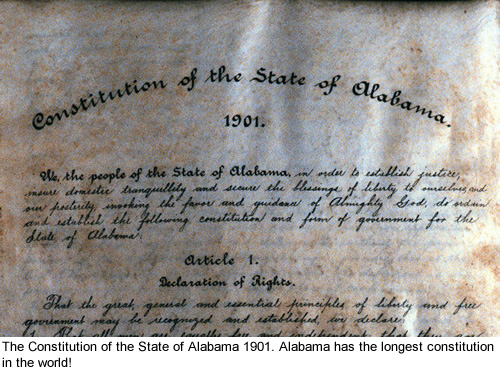 Constitution of the State of Alabama.
1901.
We, the people of the State of Alabama, in order to establish justice,
insure domestic tranquillity and secure the blessings of liberty to ourselves and
our posterity, invoking the favor and guidance of Almighty God, do ordain
and establish the following constitution and form of government for the
State of Alabama:
Article 1.
Declaration of Rights.
That the great, general and essential principles of liberty and free
government may be recognized and established, we declare:
The Constitution of the State of Alabama 1901. Alabama has the longest constitution
in the world!